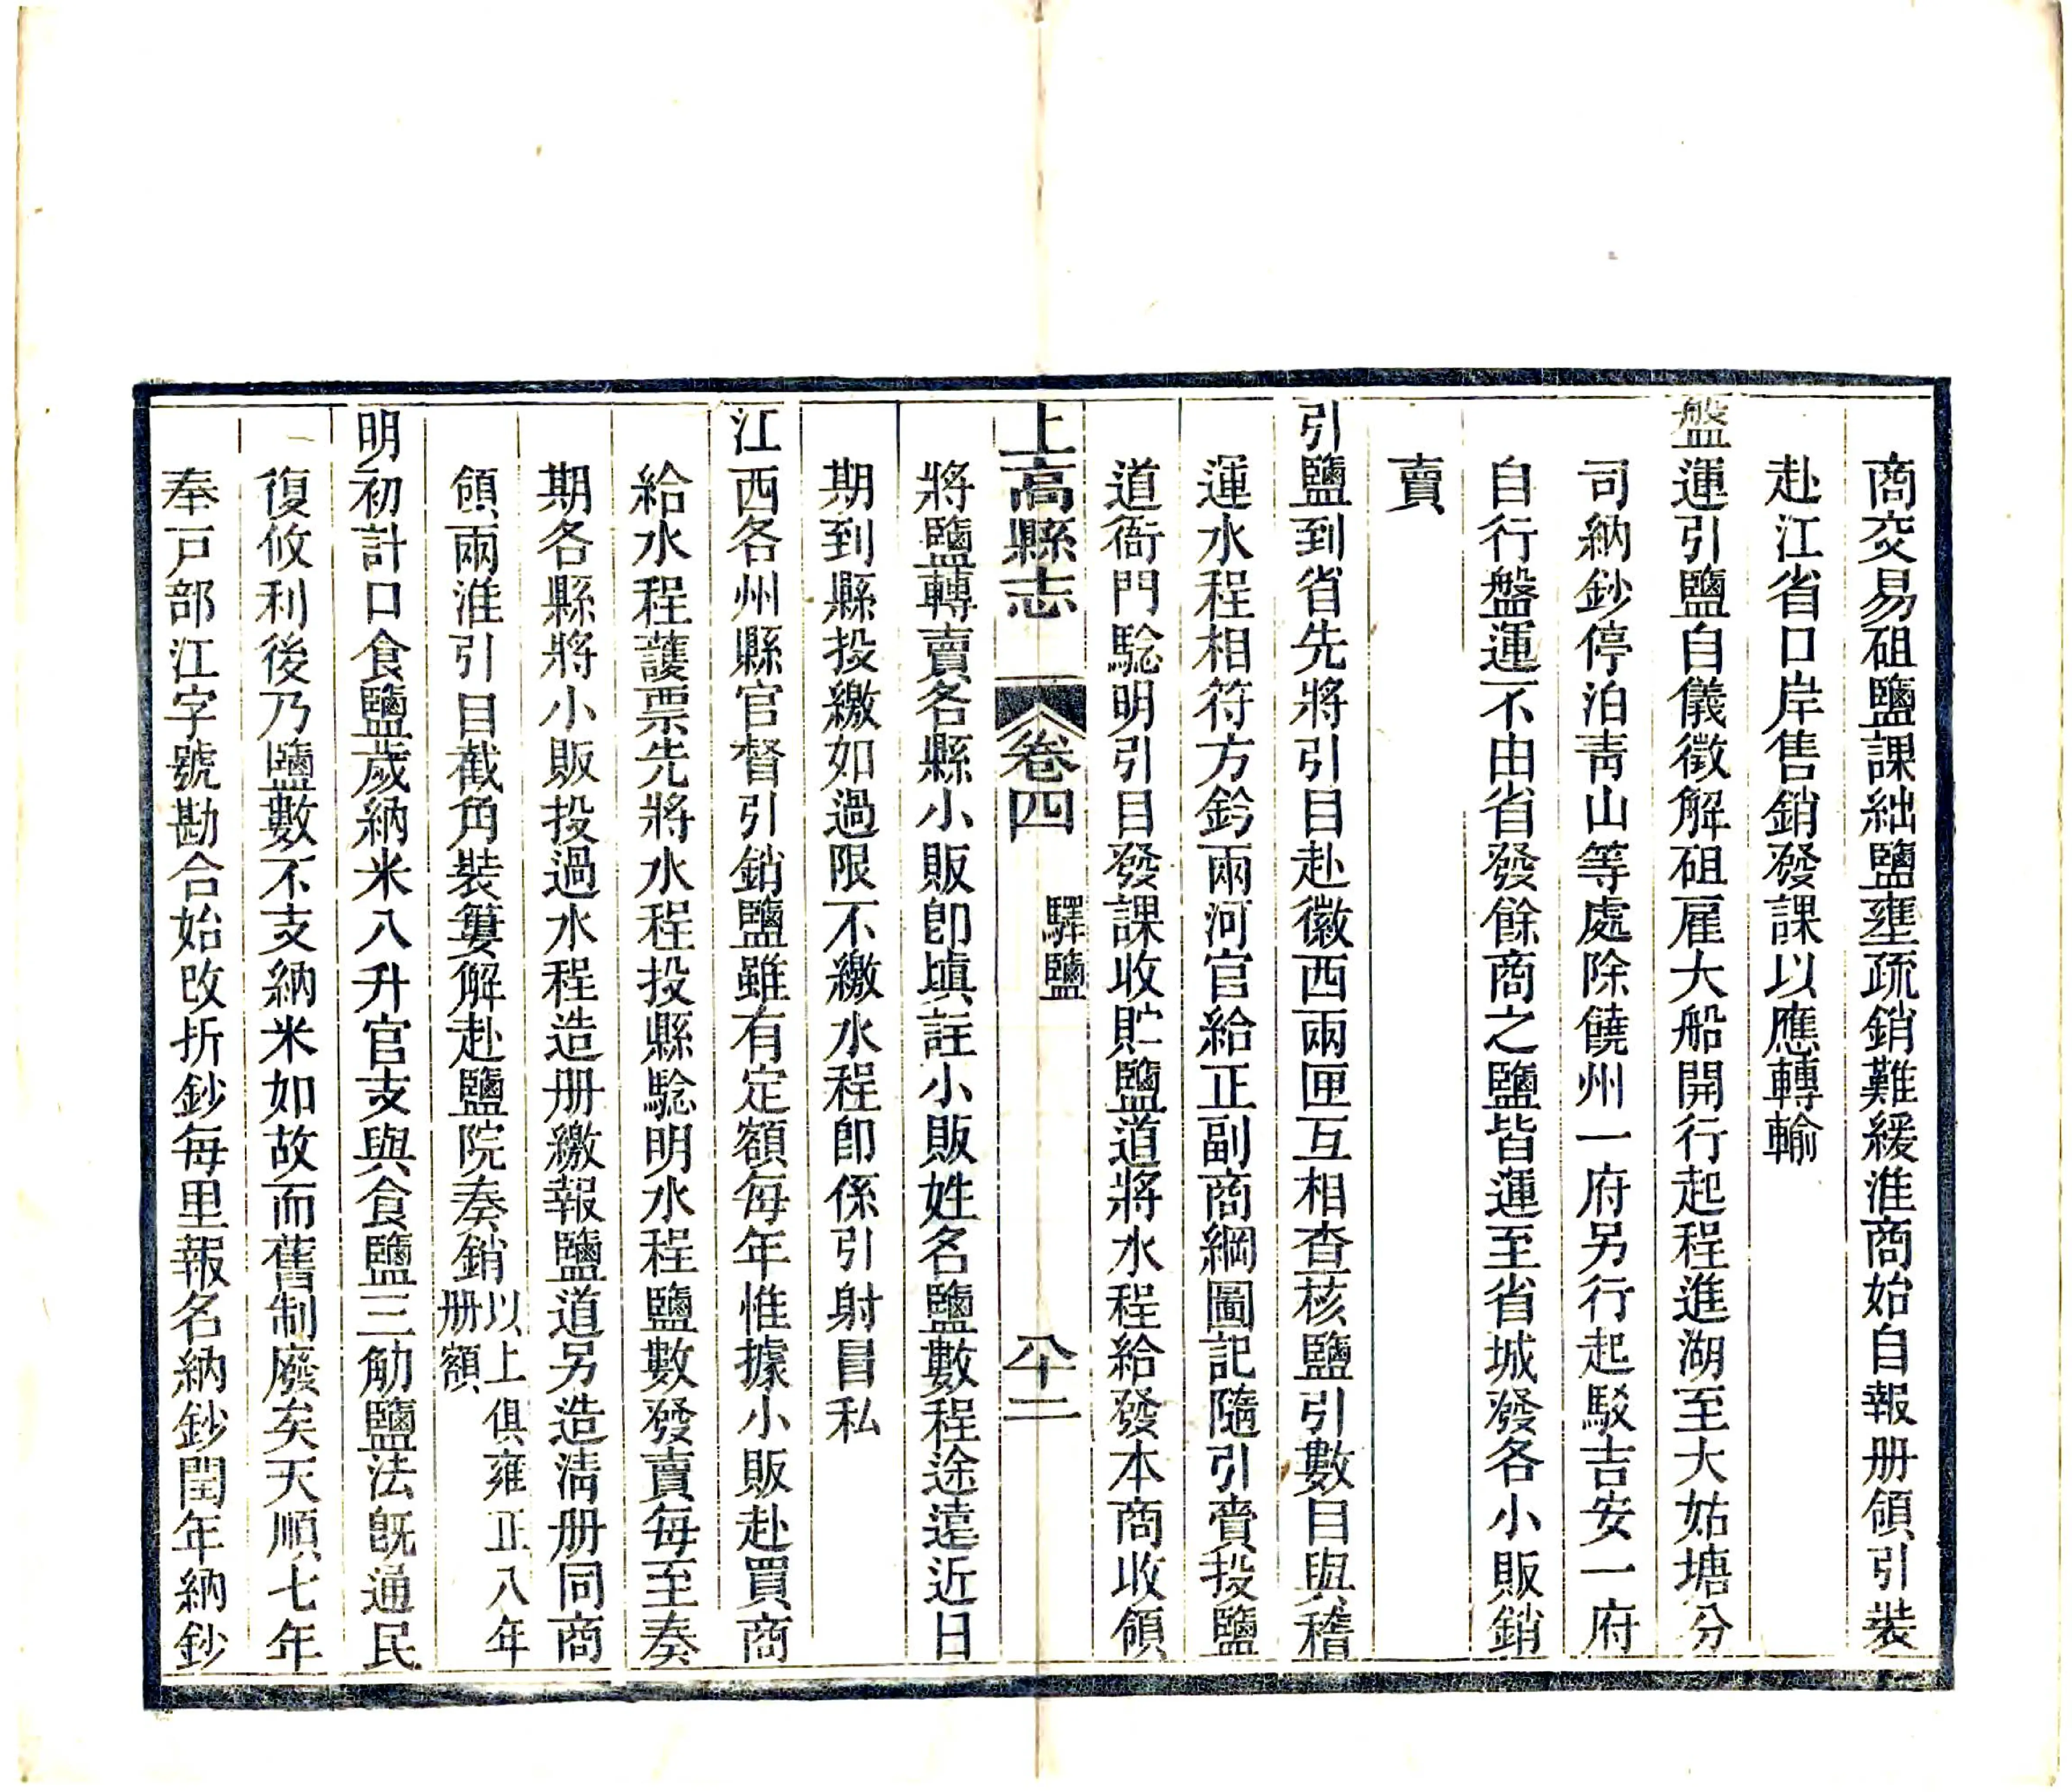 商交易砠鹽課絀鹽壅疏銷難緩淮商始自報册領引裝
赴江省口岸售銷發課以應轉輸
盤運引鹽自儀徵解砠雇大船開行起程進湖至大姑塘分
司納鈔停泊靑山等處除饒州一府另行起駁吉安一府
自行盤運不由省發餘商之鹽皆運至省城發各小販銷
賣
引鹽到省先將引目赴徽西兩匣互相查核鹽引數目與稽
運水程相符方鈐兩河官給正副商綱圖記隨引賫投鹽
道衙門騐明引目發課收貯鹽道將水程給發本商收領
上高縣志 卷四 驛鹽 八十二
將鹽轉賣各縣小販卽塡註小販姓名鹽數程途遠近日
期到縣投繳如過限不繳水程卽係引射冐私
江西各州縣官督引銷鹽雖有定額每年惟據小販赴買商
給水程護票先將水程投縣騐明水程鹽數發賣每至奏
期各縣將小販投過水程造册繳報鹽道另造淸册同商
領兩淮引目截角裝簍解赴鹽院奏銷以上俱雍正八年
册額
明初計口食鹽歲納米八升官支與食鹽三觔鹽法旣通民
復攸利後乃鹽數不支納米如故而舊制廢矣天順七年
奉戸部江字號勘合始改折鈔每里報名納鈔閏年納鈔